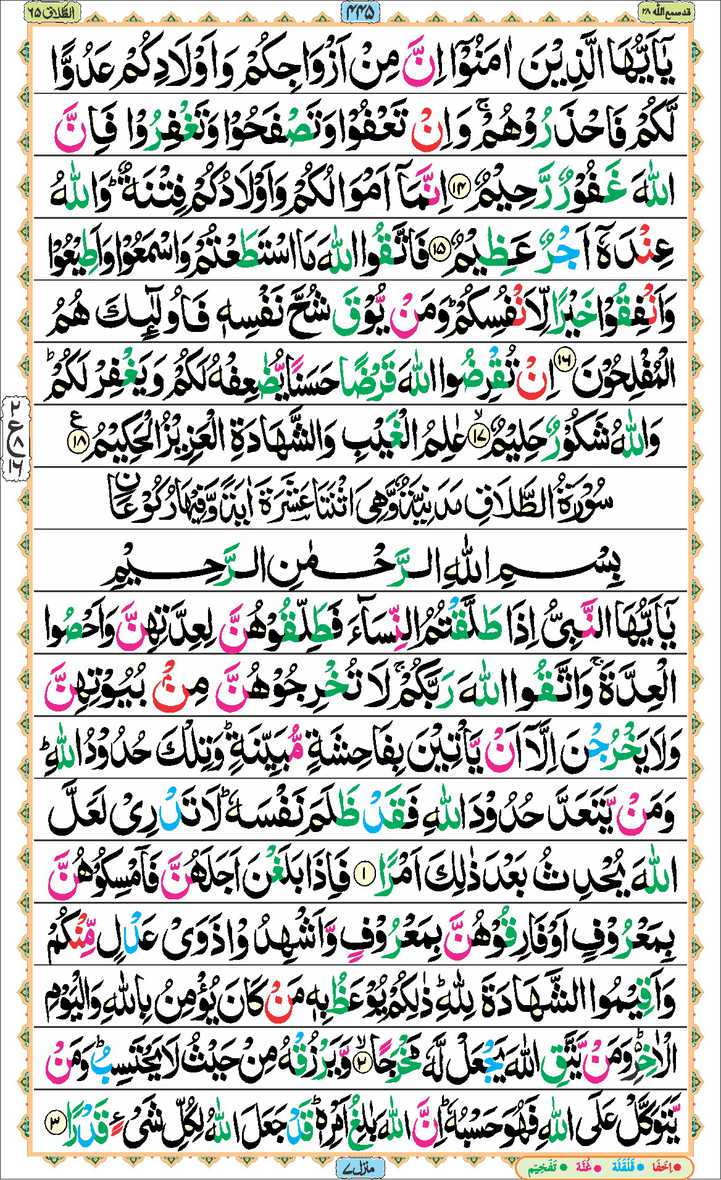 قد سمع الله ۲۸
۴۴۵
الطلاق ۶۵
يٰۤاَيُّهَا الَّذِيْنَ اٰمَنُوْۤا اِنَّ مِنْ اَزْوَاجِكُمْ وَاَوْلَادِكُمْ عَدُوًّا
لَّكُمْ فَاحْذَرُوْهُمْ ۚ وَاِنْ تَعْفُوْا وَتَصْفَحُوْا وَتَغْفِرُوْا فَاِنَّ
اللّٰهَ غَفُوْرٌ رَّحِيْمٌ ﴿۱۴﴾ اِنَّمَاۤ اَمْوَالُكُمْ وَاَوْلَادُكُمْ فِتْنَةٌ ؕ وَاللّٰهُ
عِنْدَهٗۤ اَجْرٌ عَظِيْمٌ ﴿۱۵﴾ فَاتَّقُوا اللّٰهَ مَا اسْتَطَعْتُمْ وَاسْمَعُوْا وَاَطِيْعُوْا
وَاَنْفِقُوْا خَيْرًا لِّاَنْفُسِكُمْ ؕ وَمَنْ يُّوْقَ شُحَّ نَفْسِهٖ فَاُولٰٓئِكَ هُمُ
الْمُفْلِحُوْنَ ﴿۱۶﴾ اِنْ تُقْرِضُوا اللّٰهَ قَرْضًا حَسَنًا يُّضٰعِفْهُ لَكُمْ وَيَغْفِرْ لَكُمْ ؕ
وَاللّٰهُ شَكُوْرٌ حَلِيْمٌ ۙ﴿۱۷﴾ عٰلِمُ الْغَيْبِ وَالشَّهَادَةِ الْعَزِيْزُ الْحَكِيْمُ ﴿۱۸﴾ ع
۲ ع ۸ ۱۶
سُوْرَةُ الطَّلَاقِ مَدَنِيَّةٌ وَّهِىَ اثْنَتَا عَشْرَةَ اٰيَةً وَّفِيْهَا رُكُوْعَانِ
بِسْمِ اللّٰهِ الرَّحْمٰنِ الرَّحِيْمِ
يٰۤاَيُّهَا النَّبِىُّ اِذَا طَلَّقْتُمُ النِّسَآءَ فَطَلِّقُوْهُنَّ لِعِدَّتِهِنَّ وَاَحْصُوا
الْعِدَّةَ ۚ وَاتَّقُوا اللّٰهَ رَبَّكُمْ ۚ لَا تُخْرِجُوْهُنَّ مِنْۢ بُيُوْتِهِنَّ
وَلَا يَخْرُجْنَ اِلَّاۤ اَنْ يَّاْتِيْنَ بِفَاحِشَةٍ مُّبَيِّنَةٍ ؕ وَتِلْكَ حُدُوْدُ اللّٰهِ ؕ
وَمَنْ يَّتَعَدَّ حُدُوْدَ اللّٰهِ فَقَدْ ظَلَمَ نَفْسَهٗ ؕ لَا تَدْرِىْ لَعَلَّ
اللّٰهَ يُحْدِثُ بَعْدَ ذٰلِكَ اَمْرًا ﴿۱﴾ فَاِذَا بَلَغْنَ اَجَلَهُنَّ فَاَمْسِكُوْهُنَّ
بِمَعْرُوْفٍ اَوْ فَارِقُوْهُنَّ بِمَعْرُوْفٍ وَّاَشْهِدُوْا ذَوَىْ عَدْلٍ مِّنْكُمْ
وَاَقِيْمُوا الشَّهَادَةَ لِلّٰهِ ؕ ذٰلِكُمْ يُوْعَظُ بِهٖ مَنْ كَانَ يُؤْمِنُ بِاللّٰهِ وَالْيَوْمِ
الْاٰخِرِ ؕ وَمَنْ يَّتَّقِ اللّٰهَ يَجْعَلْ لَّهٗ مَخْرَجًا ۙ﴿۲﴾ وَّيَرْزُقْهُ مِنْ حَيْثُ لَا يَحْتَسِبُ ؕ وَمَنْ
يَّتَوَكَّلْ عَلَى اللّٰهِ فَهُوَ حَسْبُهٗ ؕ اِنَّ اللّٰهَ بَالِغُ اَمْرِهٖ ؕ قَدْ جَعَلَ اللّٰهُ لِكُلِّ شَىْءٍ قَدْرًا ﴿۳﴾
منزل ۷
اِخفَا قَلقَلَة غُنَّة تَفخِيم